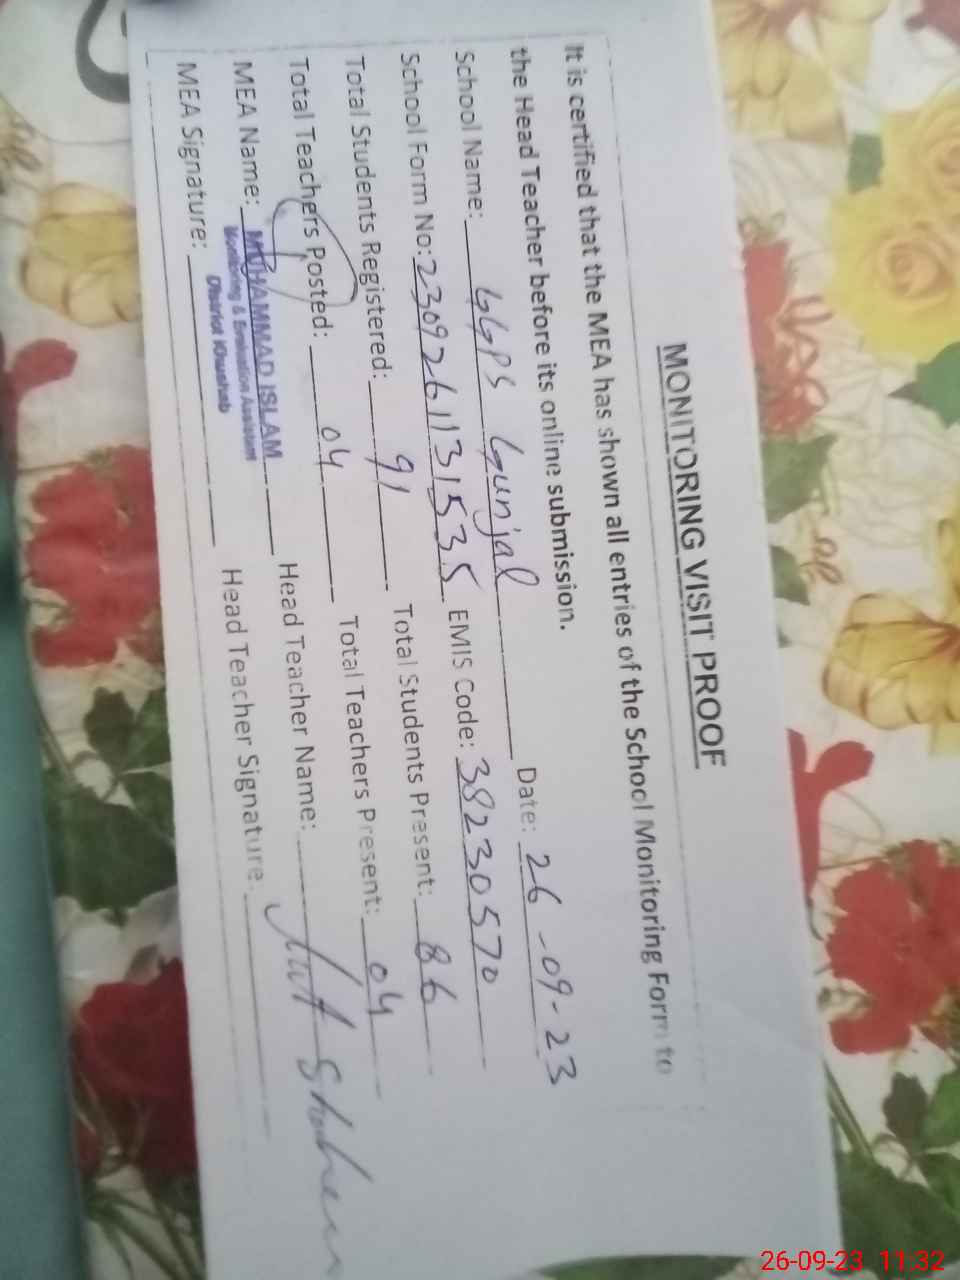 MONITORING VISIT PROOF
It is certified that the MEA has shown all entries of the School Monitoring Form to
the Head Teacher before its online submission.
School Name: GGPS Gunjal Date: 26-09-23
School Form No: 2309261131535 EMIS Code: 38230570
Total Students Registered: 91 Total Students Present: 86
Total Teachers Posted: 04 Total Teachers Present: 04
MEA Name: MUHAMMAD ISLAM Head Teacher Name: Shaheen
Monitoring & Evaluation Assistant
District Khushab
MEA Signature: Head Teacher Signature:
26-09-23 11:32